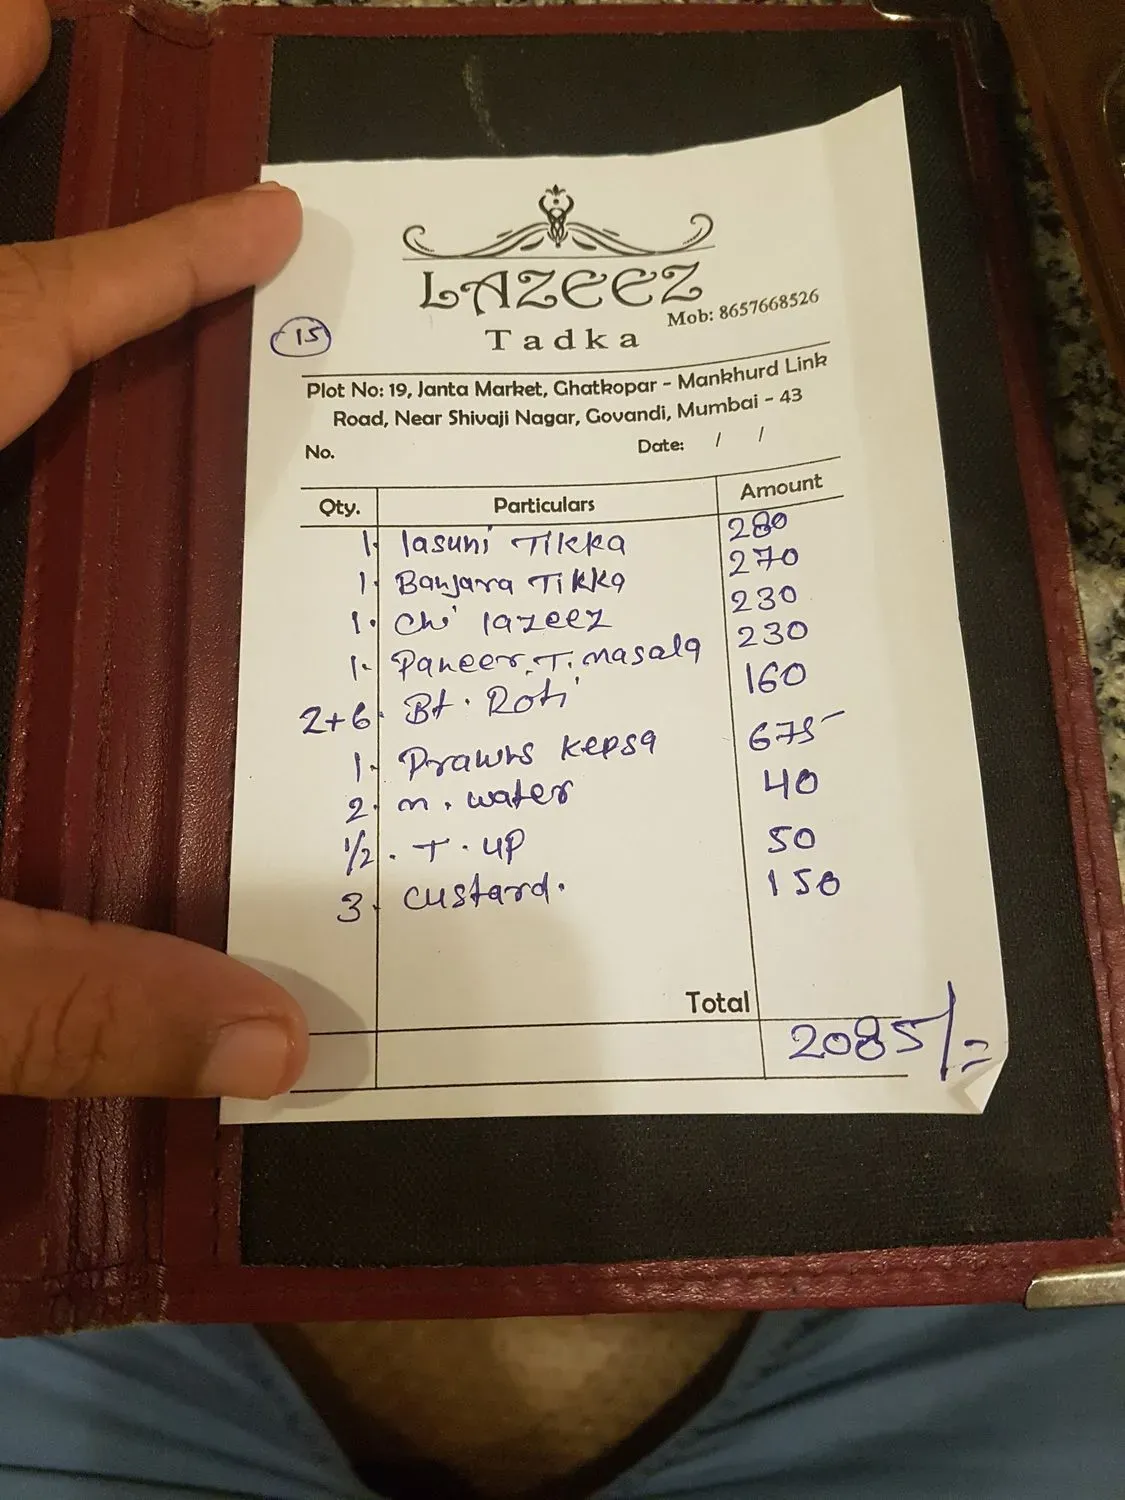 LAZEEZ
Tadka
Mob: 8657668526
15
Plot No: 19, Janta Market, Ghatkopar - Mankhurd Link
Road, Near Shivaji Nagar, Govandi, Mumbai - 43
No. Date: / /
Qty. Particulars Amount
1. lasuni Tikka 280
1. Banjara Tikka 270
1. Chi lazeez 230
1. Paneer. T. masala 230
2+6. Bt. Roti 160
1. Prawns Kepsa 675
2. m. water 40
1/2. T. up 50
3. custard. 150
Total
2085/=